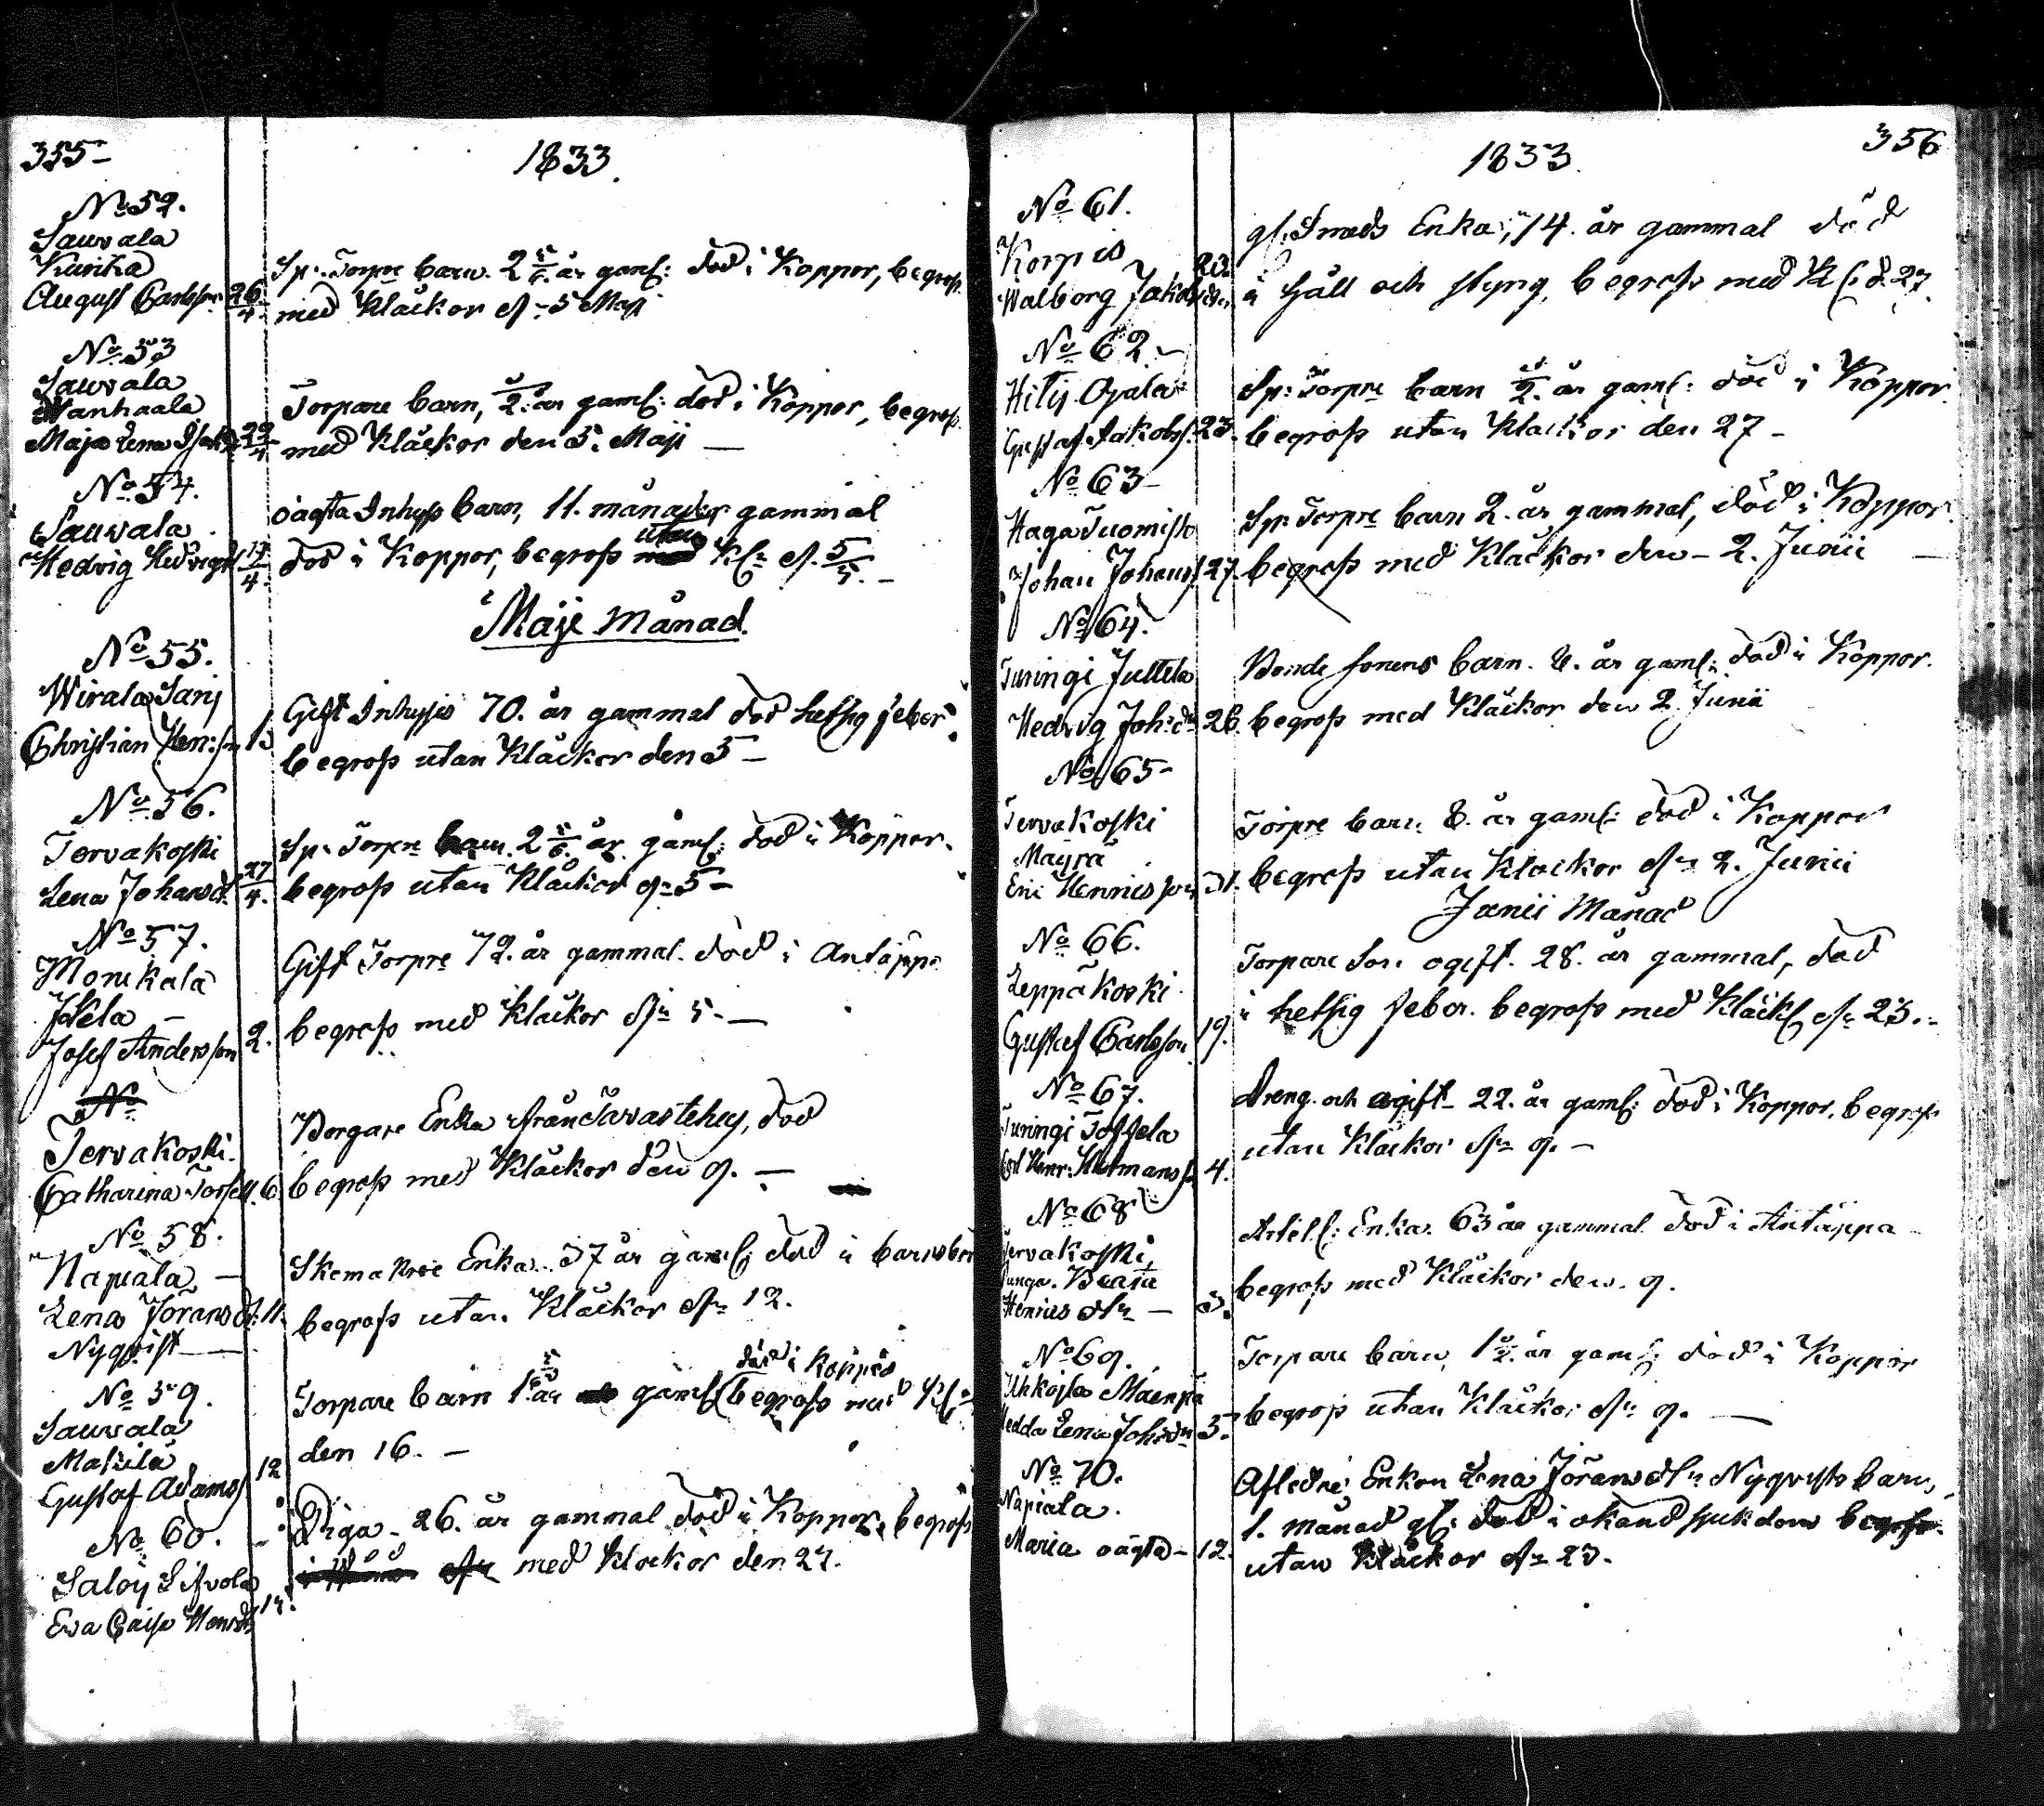 355-
1833.
No 52.
Sauvala
Kurika
August Carlsson 26/4
Sp: Torpre barn 2 5/6 år gaml: död i Koppor, begrofs
med Kläckor d: 5 Maji
No 53
Sauvala
Manhaala
Maja Lena 22/4
Torpare barn, 1/2 år gaml: död i Koppor, begrofs
med Kläckor den 5. Maji —
No 54.
Sauvala
Hedvig Hedvigs 17/4
oägta Inhys barn, 11. månader gammal
död i Koppor, begrofs utan Kl: d. 5/5. -
Maji Månad.
No 55.
Wirala Sarij
Christian Hen:son 1.
Gift Inhysis 70. år gammal död hefsig feber
begrofs utan Kläckor den 5 -
No 56.
Tervakoski
Lena Johansd. 27/4.
Sp: Torpre barn 2 5/6 år gaml: död i Koppor.
begrofs utan Kläckor d: 5 -
No 57.
Monikala
Jokela -
Josef Andersson 2.
Gift Torpre 72. år gammal. död i Antäppa
begrofs med Kläckor dn 5. —
No
Tervakoski.
Catharina 6.
Borgare Enka från Tavastehus, död
begrofs med Kläckor den 9. —
No 58.
Napiala. -
Lena Jörans d: 11.
Nyqvist —
Enka 37 år gaml: död i barnsbör
begrofs utan Kläckor dn 12.
No 59.
Sauvala
Makila
Gustaf Adams 12
Torpare barn 1 år gaml: död i Koppor begrofs med Kl:
den 16. -
No 60.
Saloij
Eva Caisa Henrs
Piga - 26. år gammal död i Koppor, begrofs
med Klockor den 27.
356
1833.
No 61.
Korpis
Walborg Jakobsd:
gl. Smeds Enka, 74. år gammal död
i håll och styng, begrofs med Kl: d. 27.
No 62. -
Hitij Ojala
Gustaf Jakobss. 23.
Sp: Torpre barn 1/2. år gaml: död i Koppor
begrofs utan Klackor den 27 -
No 63-
Haga Tuomisto
Johan Johans 27.
Sp: Torpre barn 2. år gammal, död i Koppor.
begrofs med Kläckor den - 2. Junii —
No 64.
Turingi Juttela
Hedvig Joh:dr 26.
Bonde sonens barn. år gaml: död i Koppor.
begrofs med Kläckor den 2 Junii
No 65-
Tervakoski
Mäyrä
Eric Henricsson 31.
Torpre barn 8. år gaml: död i Koppor
begrofs utan Klockor dn 2. Junii
Junii Månad
No 66.
Leppäkoski
Gustaf Carlsson 19.
Torpare Son ogift. 28. år gammal, död
i hefsig feber. begrofs med Kläck dn 23.-
No 67.
Turingi Toffela
4.
Dreng och ogift - 22. år gaml: död i Koppor, begrofs
utan Klockor dn 9. -
No 68
Tervakoski,
Henrics dr — 3.
Enka. 63 år gammal död i Antäppa
begrofs med Kläckor den. 9.
No 69.
Maenpä
Hedda Lena Johsdr 5.
Torpare barn 1 1/2. år gaml: död i Koppor
begrofs utan Kläckor dn 9. —
No 70.
Napiala.
Maria oägta - 12.
Afledne Enkan Lena Jörans dr Nyqvists barn,
1. månad gl: död i okänd sjukdom begrofs
utan Kläckor dn 23.